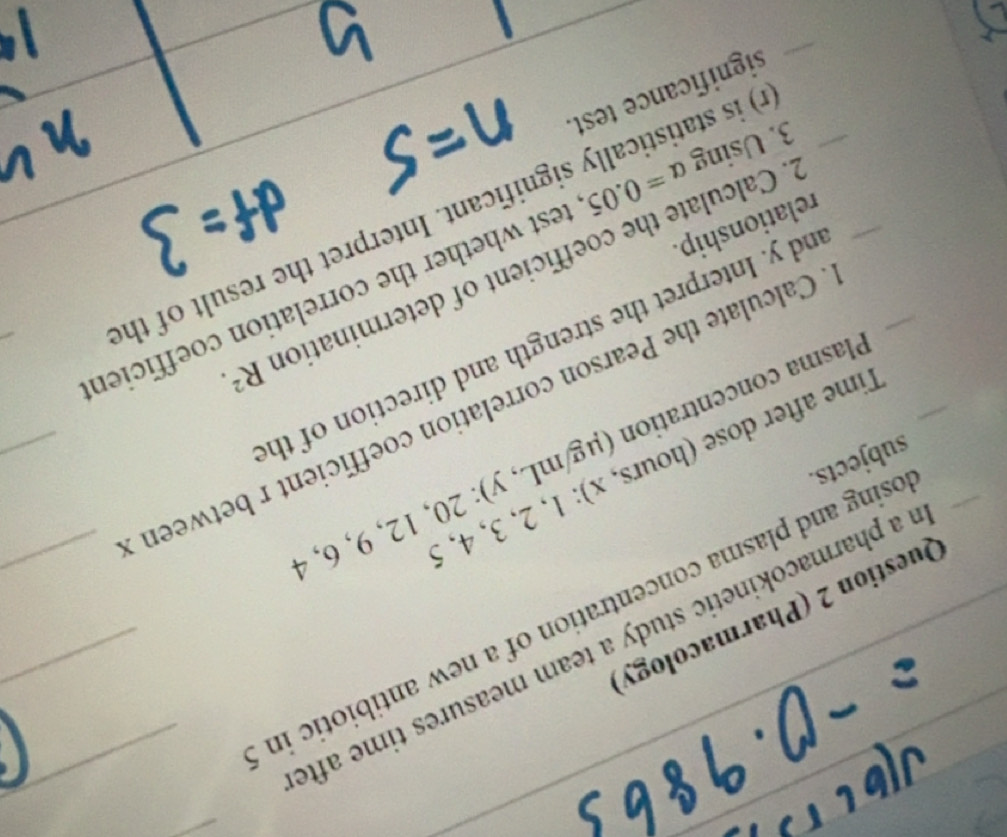 = -0.9865
Question 2 (Pharmacology)
In a pharmacokinetic study a team measures time after
dosing and plasma concentration of a new antibiotic in 5
subjects.
Time after dose (hours, x): 1, 2, 3, 4, 5
Plasma concentration (μg/mL, y): 20, 12, 9, 6, 4
1. Calculate the Pearson correlation coefficient r between x
and y. Interpret the strength and direction of the
relationship.
2. Calculate the coefficient of determination R².
3. Using α = 0.05, test whether the correlation coefficient
(r) is statistically significant. Interpret the result of the
significance test.
n=5 df=3